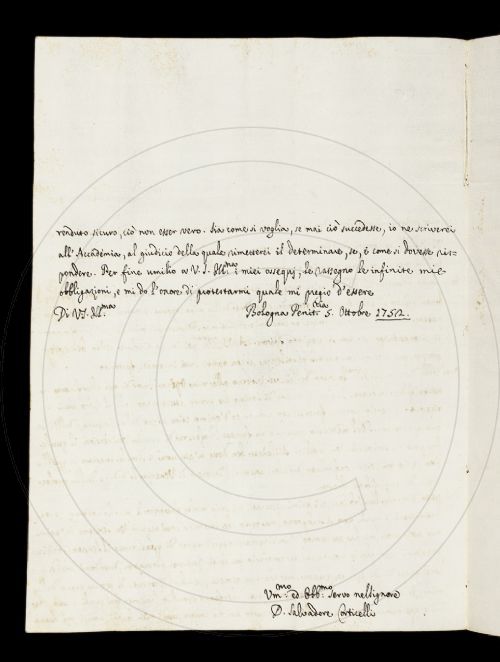 renduto sicuro, ciò non esser vero. Sia come si voglia, se mai ciò succedesse, io ne scriverei
all'Accademia, al giudicio della quale rimetterei il determinare, se, e come si dovesse ris=
pondere. Per fine umilio a V. S. Ill.ma i miei ossequj, le rassegno le infinite mie
obbligazioni, e mi do l'onore di protestarmi quale mi pregio d'essere
Di V.S. Ill.ma Bologna Penit.ria 5. Ottobre 1752.
Um.mo ed Obb.mo servo nel Signore
D. Salvadore Corticelli